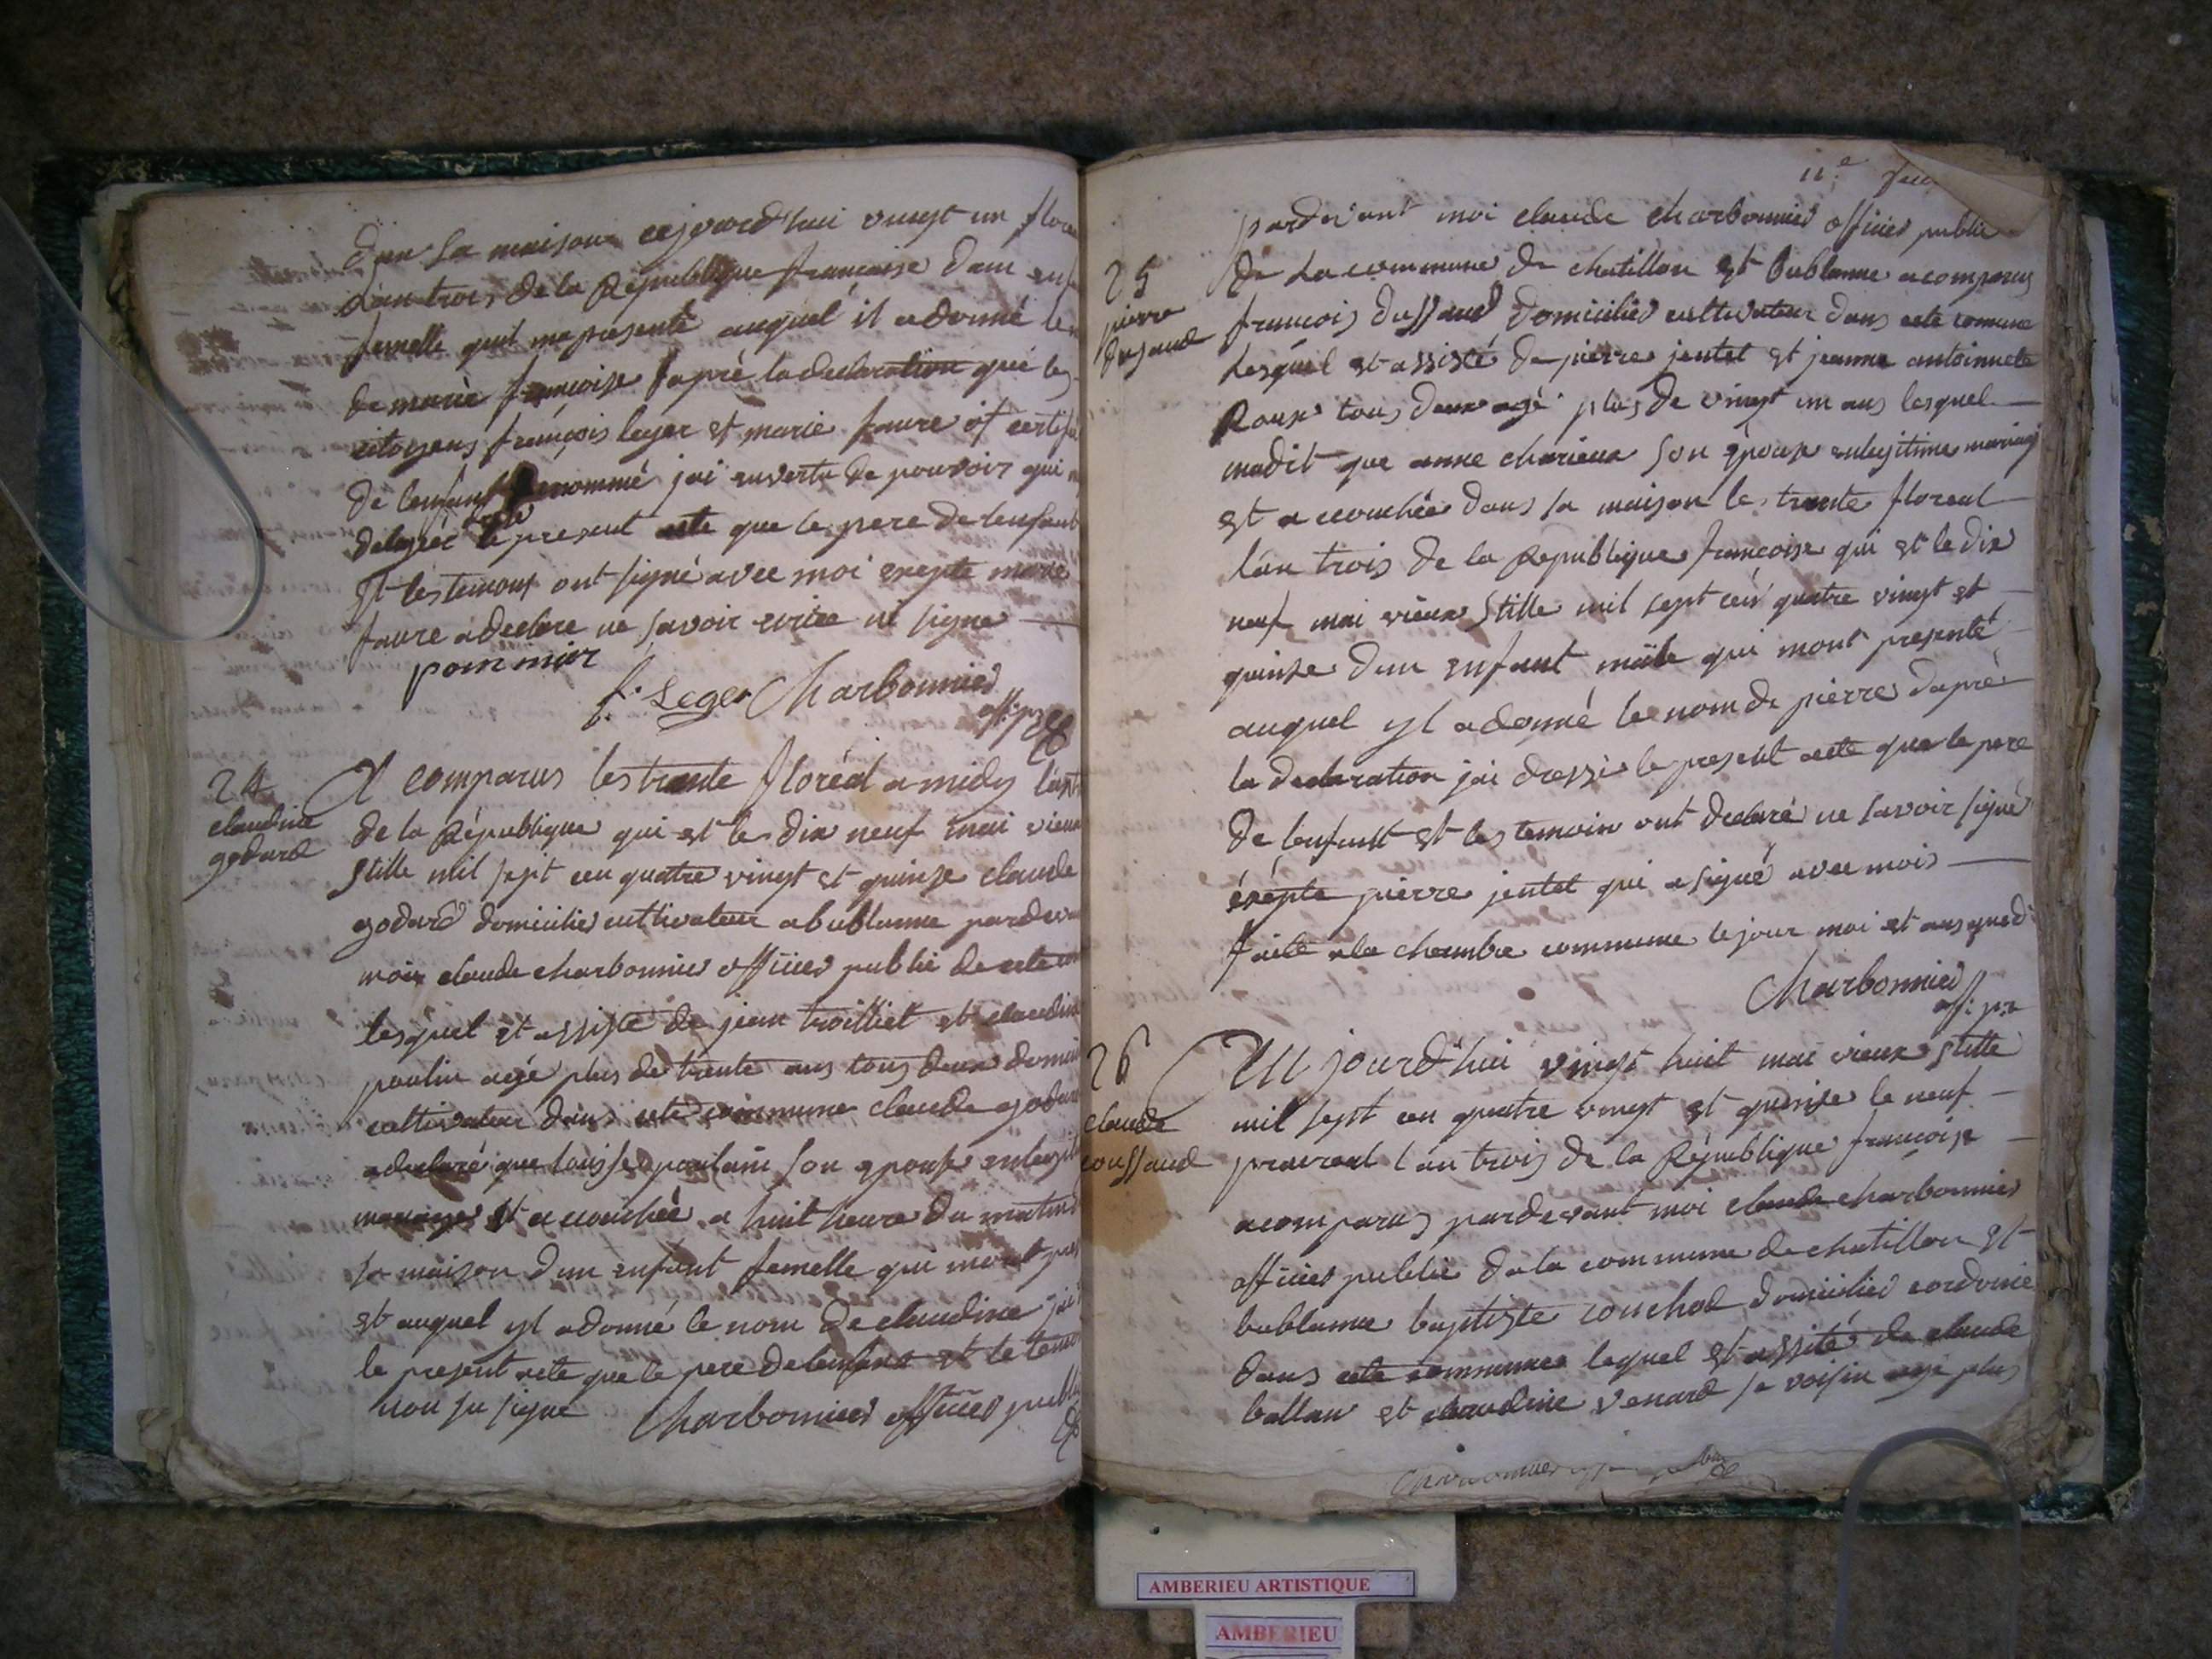 dans sa maison cejourd'hui vingt un flore
l'an trois de la Republique françoise dun enf
femelle quil ma presenté auquel il a donné le n
de marie françoise daprè la declaration que les
citoyens françois leger et marie faure ot certifié
de lenfant denommé jai en vertu de pouvoir qui m
delegué dressé le present acte que le pere de lenfant
et les temoins ont signé avec moi exepte marie
faure a declare ne savoir ecrire ni signe
pommier
f. Leger Charbonnier
off. p.
24
claudine
godard
A comparus les trante floréal a midy lan t
de la République qui est les dix neuf mai vieux
stille mil sept cen quatre vingt et quinze claude
godard domicilié cultivateur a bublanne pardeva
moi claude charbonnier officier public de cete com
lesquel et assisté de jean trolliet et claudine
poulin agé plus de trante ans tous deux domici
cultivateur dans cete commune claude godard
a declaré que louisse poulain son epouse en legiti
mariage et accouchée a huit heure du matin d
sa maison dun enfant femelle qui mont pres
et auquel yl a donné le nom de claudine jai
le present acte que le pere de lenfant et le temoi
non su signe Charbonnier officier public
11.e feu
25
pierre
dusaud
pardevant moi claude charbonnier officier public
de la commune de chatillon et bublanne a comparus
françois dussaud domicilié cultivateur dans cete comune
lesquel et assisté de pierre jentet et jeanne antoinnete
Roux tous deux agé plus de vingt un ans lesquel
madit que anne charieux son epouse en legitime mariag
est accouchée dans sa maison les trante floreal
l'an trois de la Republique françoise qui est le dix
neuf mai vieux stille mil sept cen quatre vingt et
quinze dun enfant male qui mont presenté
auquel yl a donné le nom de pierre daprè
la declaration jai dressé le present acte que le pere
de lenfant et les temoin ont declaré ne savoir signé
exépte pierre jentet qui a signé avec mois
faite a la chambre commune le jour moi et ans que d
Charbonnier
off. p.
26
claude
coussaud
Aujourd'hui vingt huit mai vieux stille
mil sept cen quatre vingt et quinze le neuf
prereal l'an trois de la République françoise
a comparus pardevant moi claude charbonnier
officier public de la commune de chatillon et
bublanne baptiste couchod domicilié cordonie
dans cete commune lequel et assité de claude
ballan et claudine venard sa voisin agé plus
Charbonnier
AMBERIEU ARTISTIQUE
AMBERIEU